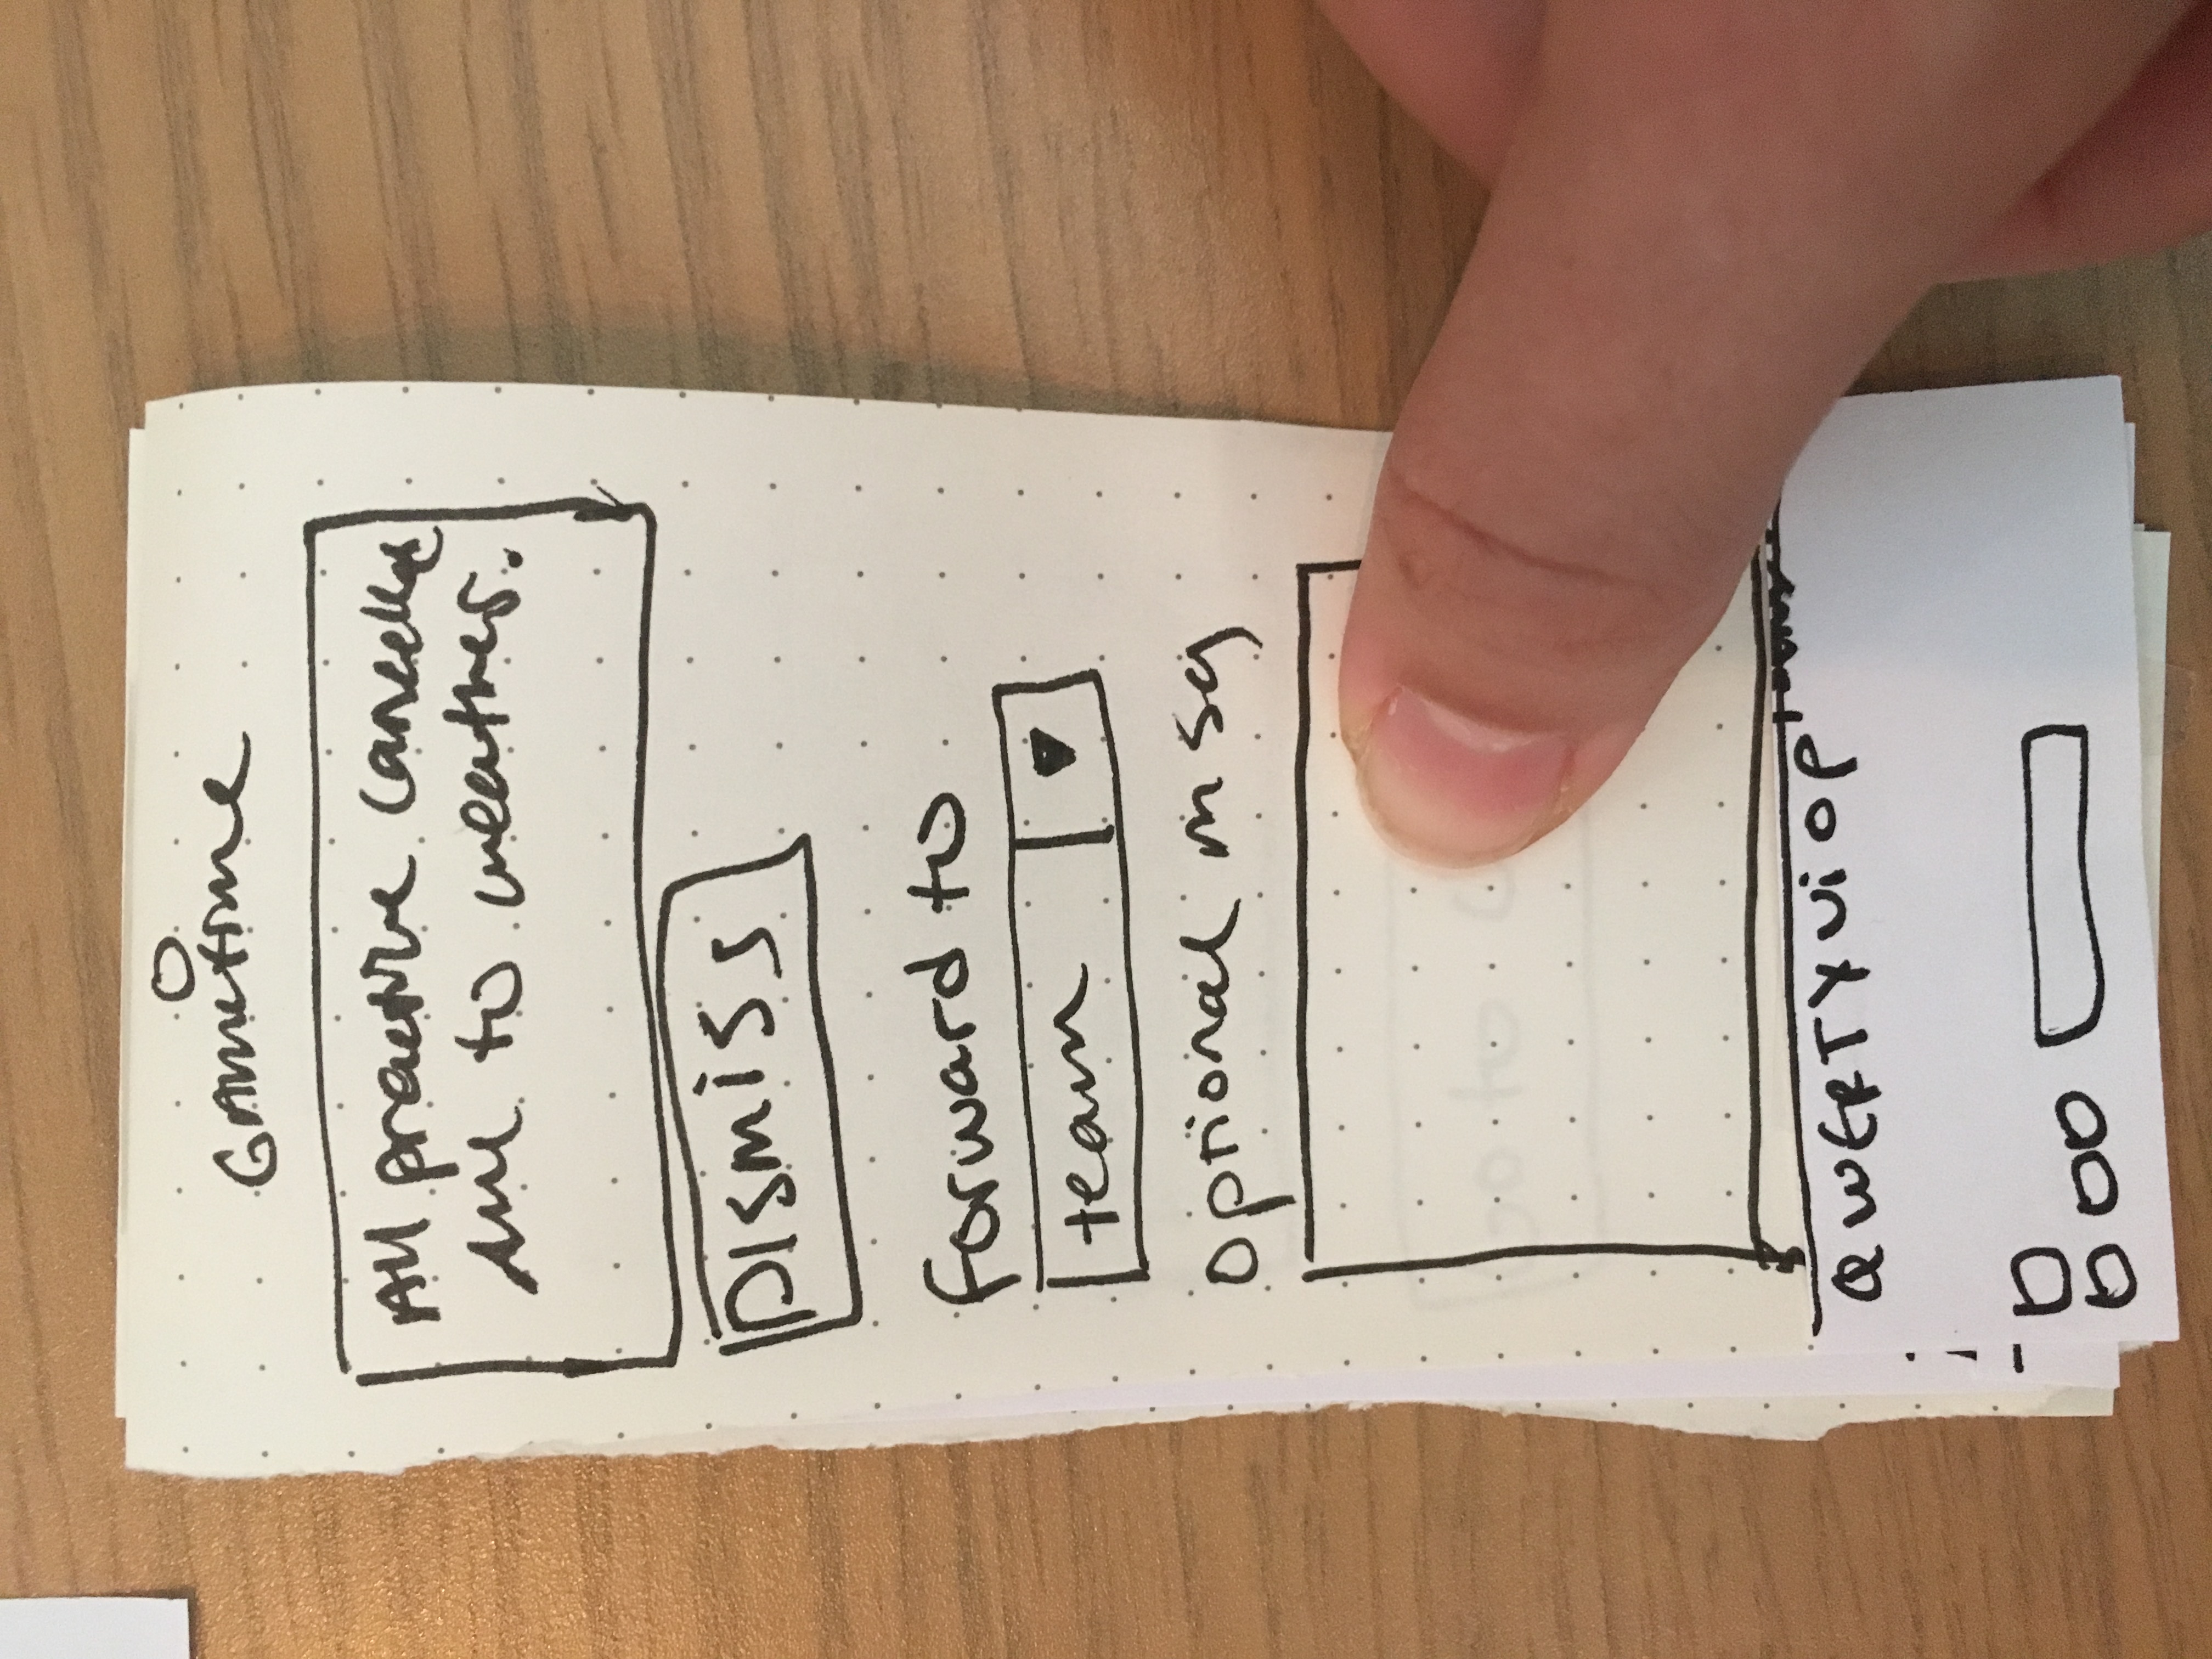 Gametime
All practice cancelled
due to weather.
Dismiss
forward to
team
optional msg
Go to
QWERTYUiOP